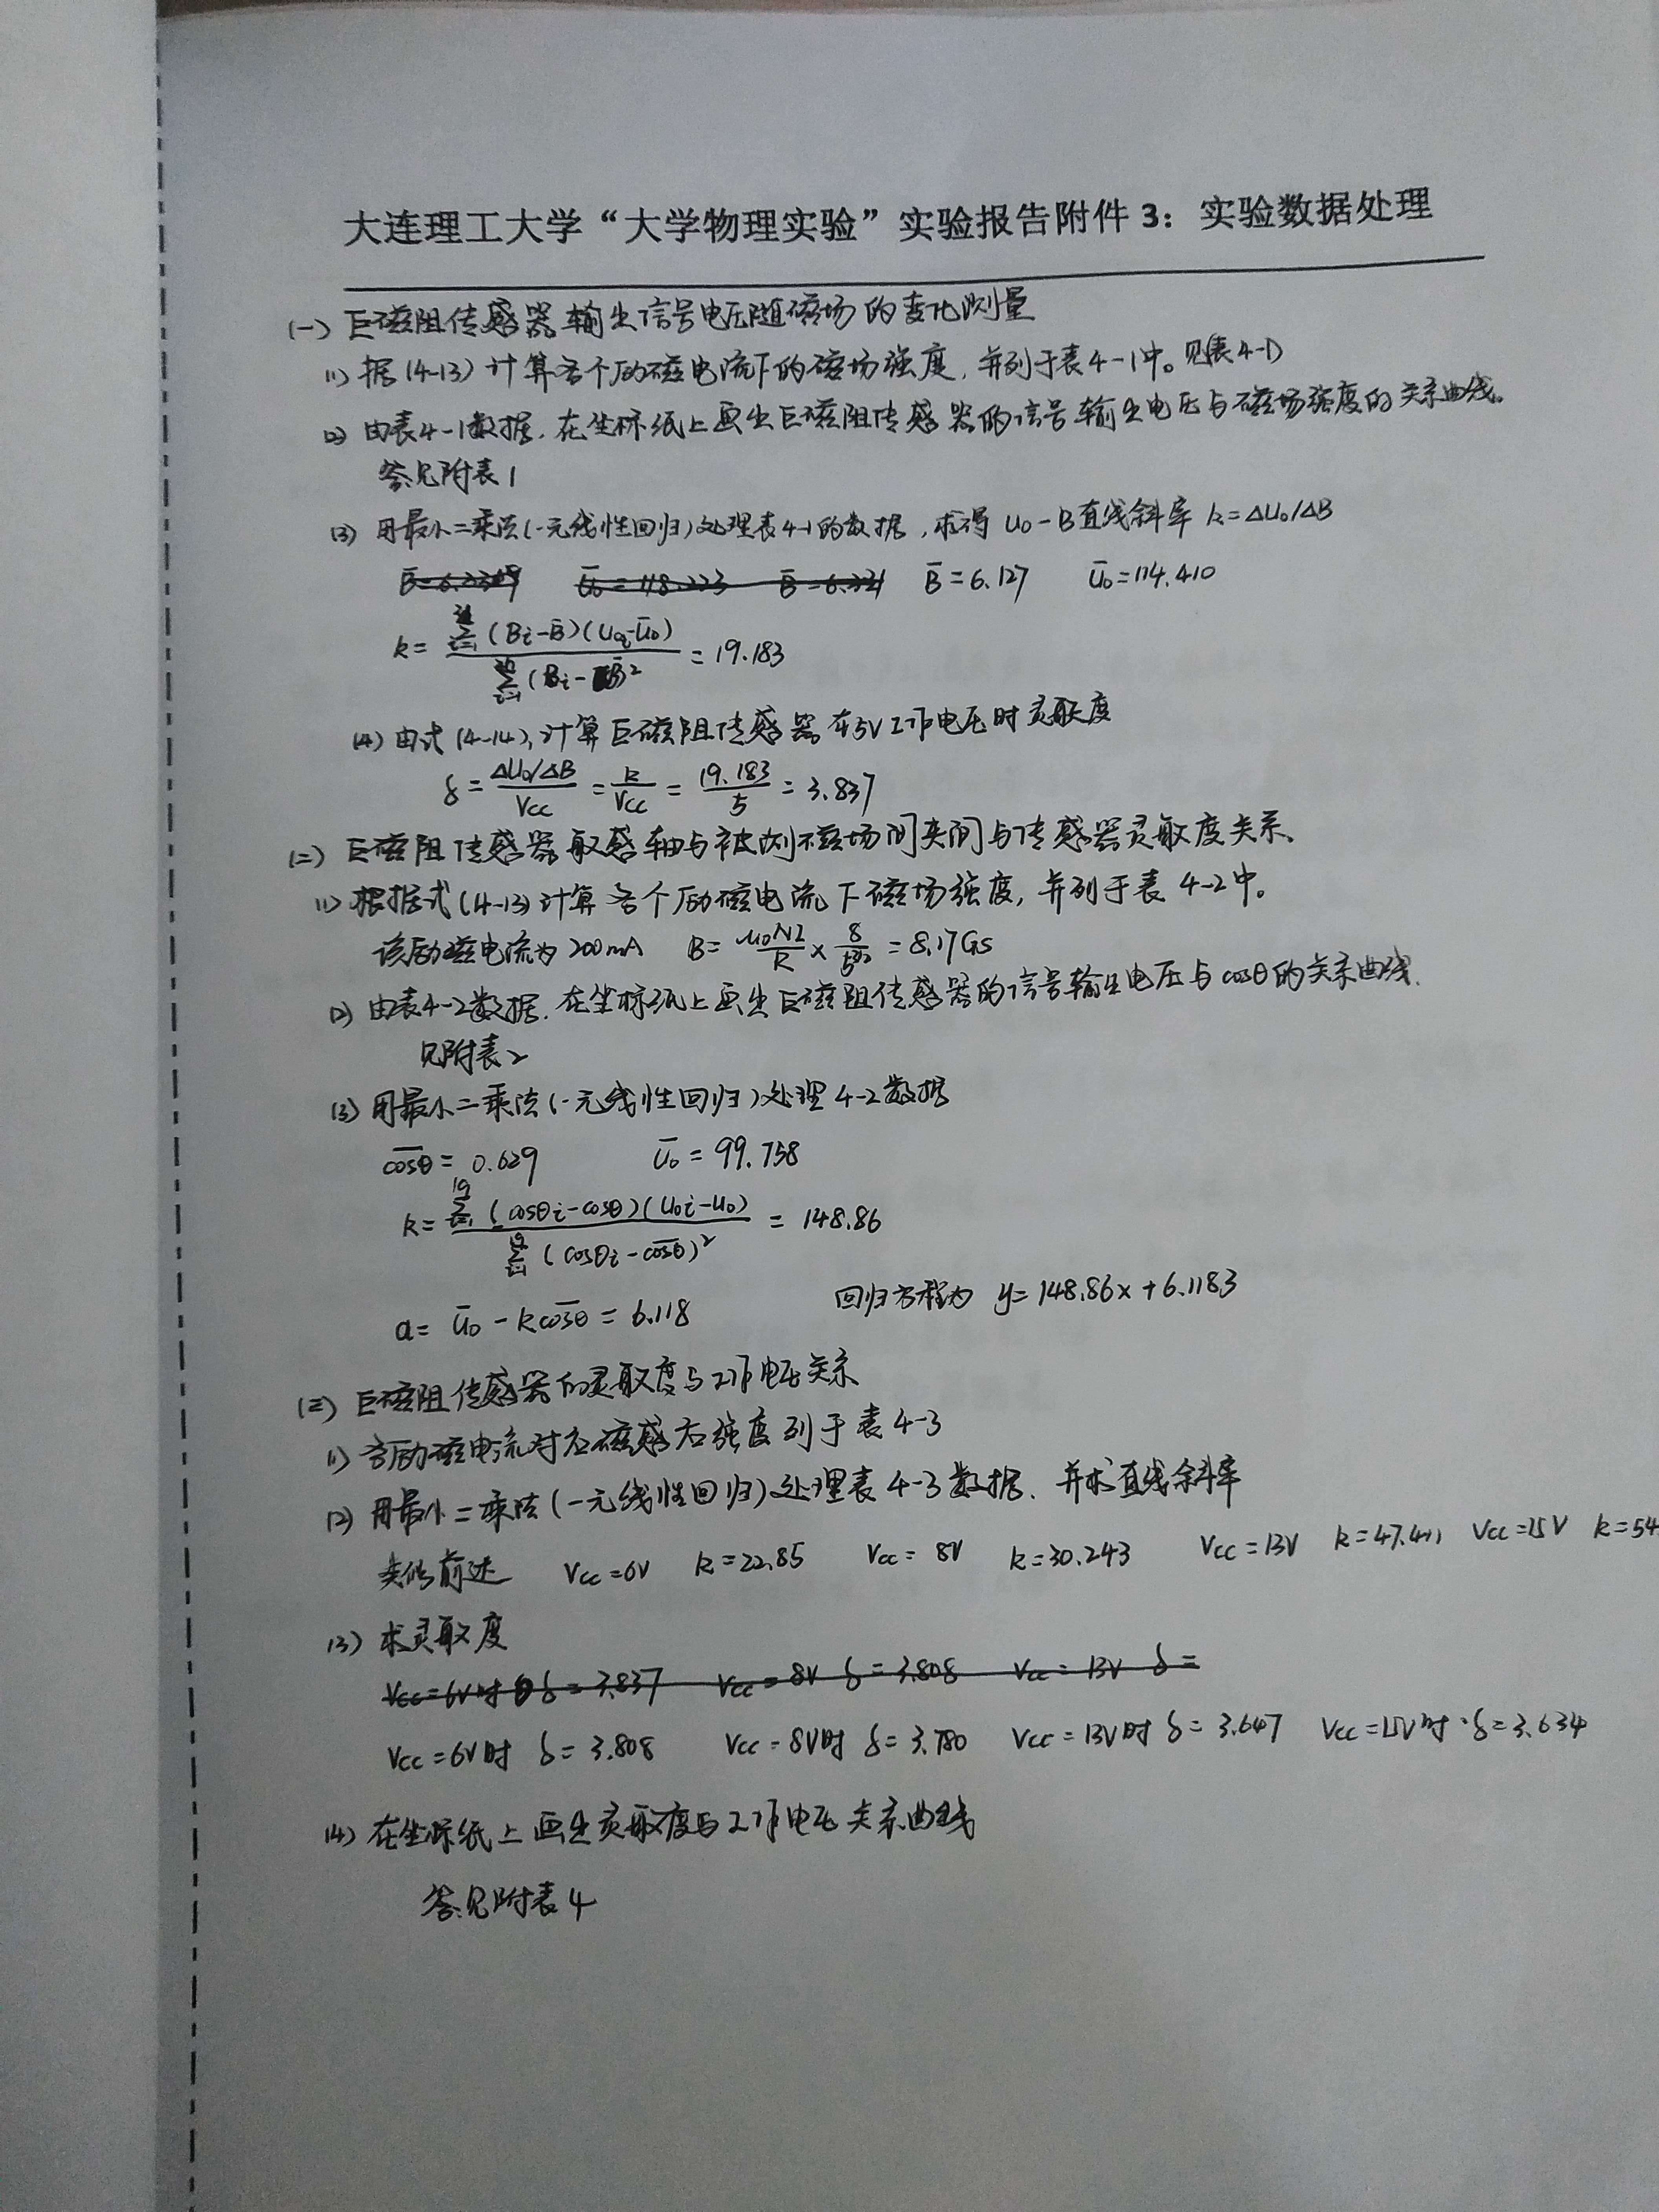 大连理工大学“大学物理实验”实验报告附件3：实验数据处理
(一) 巨磁阻传感器输出信号电压随磁场的变化测量
(1) 据(4-13)计算各个励磁电流下的磁场强度，并列于表4-1中。见(表4-1)
(2) 由表4-1数据，在坐标纸上画出巨磁阻传感器的信号输出电压与磁场强度的关系曲线。
答：见附表1
(3) 用最小二乘法(一元线性回归)处理表4-1的数据，求得 U₀-B直线斜率 k=ΔU₀/ΔB
B̄=6.127 Ū₀=114.410
k= Σ(Bi-B̄)(U₀i-Ū₀) / Σ(Bi-B̄)² =19.183
(4) 由式(4-14)，计算巨磁阻传感器在5V工作电压时灵敏度
δ= (ΔU₀/ΔB)/Vcc = k/Vcc = 19.183/5 = 3.837
(二) 巨磁阻传感器敏感轴与被测磁场间夹间与传感器灵敏度关系、
(1) 根据式(4-13)计算各个励磁电流下磁场强度，并列于表4-2中。
该励磁电流为200mA B= μ₀NI/R × 8/5^(3/2) =8.17GS
(2) 由表4-2数据，在坐标纸上画出巨磁阻传感器的信号输出电压与cosθ的关系曲线.
见附表2
(3) 用最小二乘法(一元线性回归)处理4-2数据
c̅o̅s̅θ̅= 0.629 Ū₀= 99.758
k= Σ(cosθi-cosθ)(U₀i-U₀) / Σ(cosθi-c̅o̅s̅θ̅)² = 148.86
a= Ū₀ - kc̅o̅s̅θ̅ = 6.118 回归方程为 y=148.86x+6.1183
(三) 巨磁阻传感器的灵敏度与工作电压关系
(1) 各励磁电流对应磁感应强度列于表4-3
(2) 用最小二乘法(一元线性回归)处理表4-3数据、并求直线斜率
类似前述 Vcc=6V k=22.85 Vcc=8V k=30.243 Vcc=13V k=47.411 Vcc=15V k=54
(3) 求灵敏度
Vcc=6V时 δ=3.837 Vcc=8V δ=3.808 Vcc=13V δ=
Vcc=6V时 δ=3.808 Vcc=8V时 δ=3.780 Vcc=13V时 δ=3.647 Vcc=15V时 δ=3.634
(4) 在坐标纸上画出灵敏度与工作电压关系曲线
答：见附表4